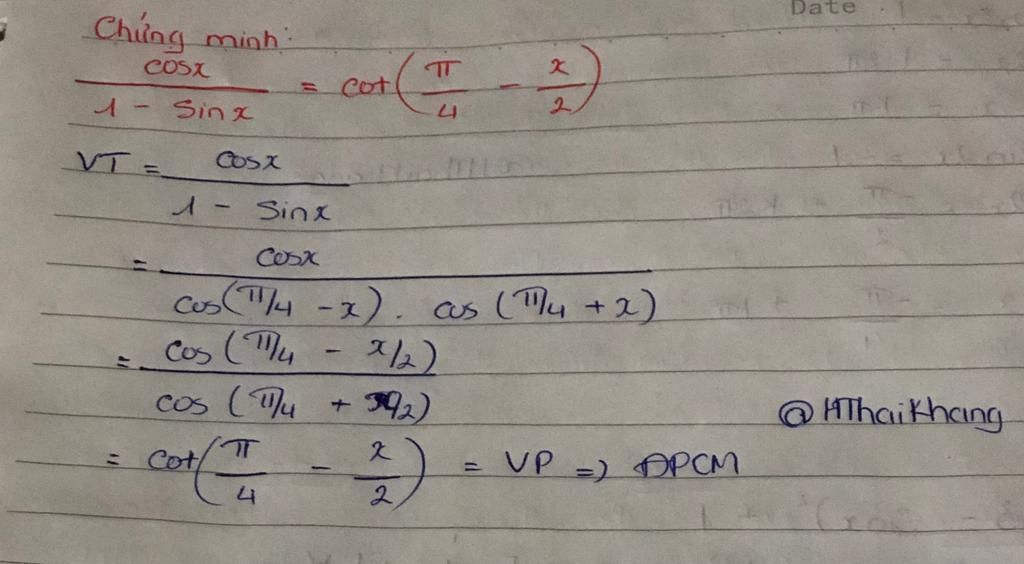 Date
Chứng minh:
cosx / 1 - sinx = cot(π/4 - x/2)
VT = cosx / 1 - sinx
= cosx / cos(π/4 - x) . cos(π/4 + x)
= cos(π/4 - x/2) / cos(π/4 + x/2)
@HThaiKhang
= cot(π/4 - x/2) = VP => ĐPCM